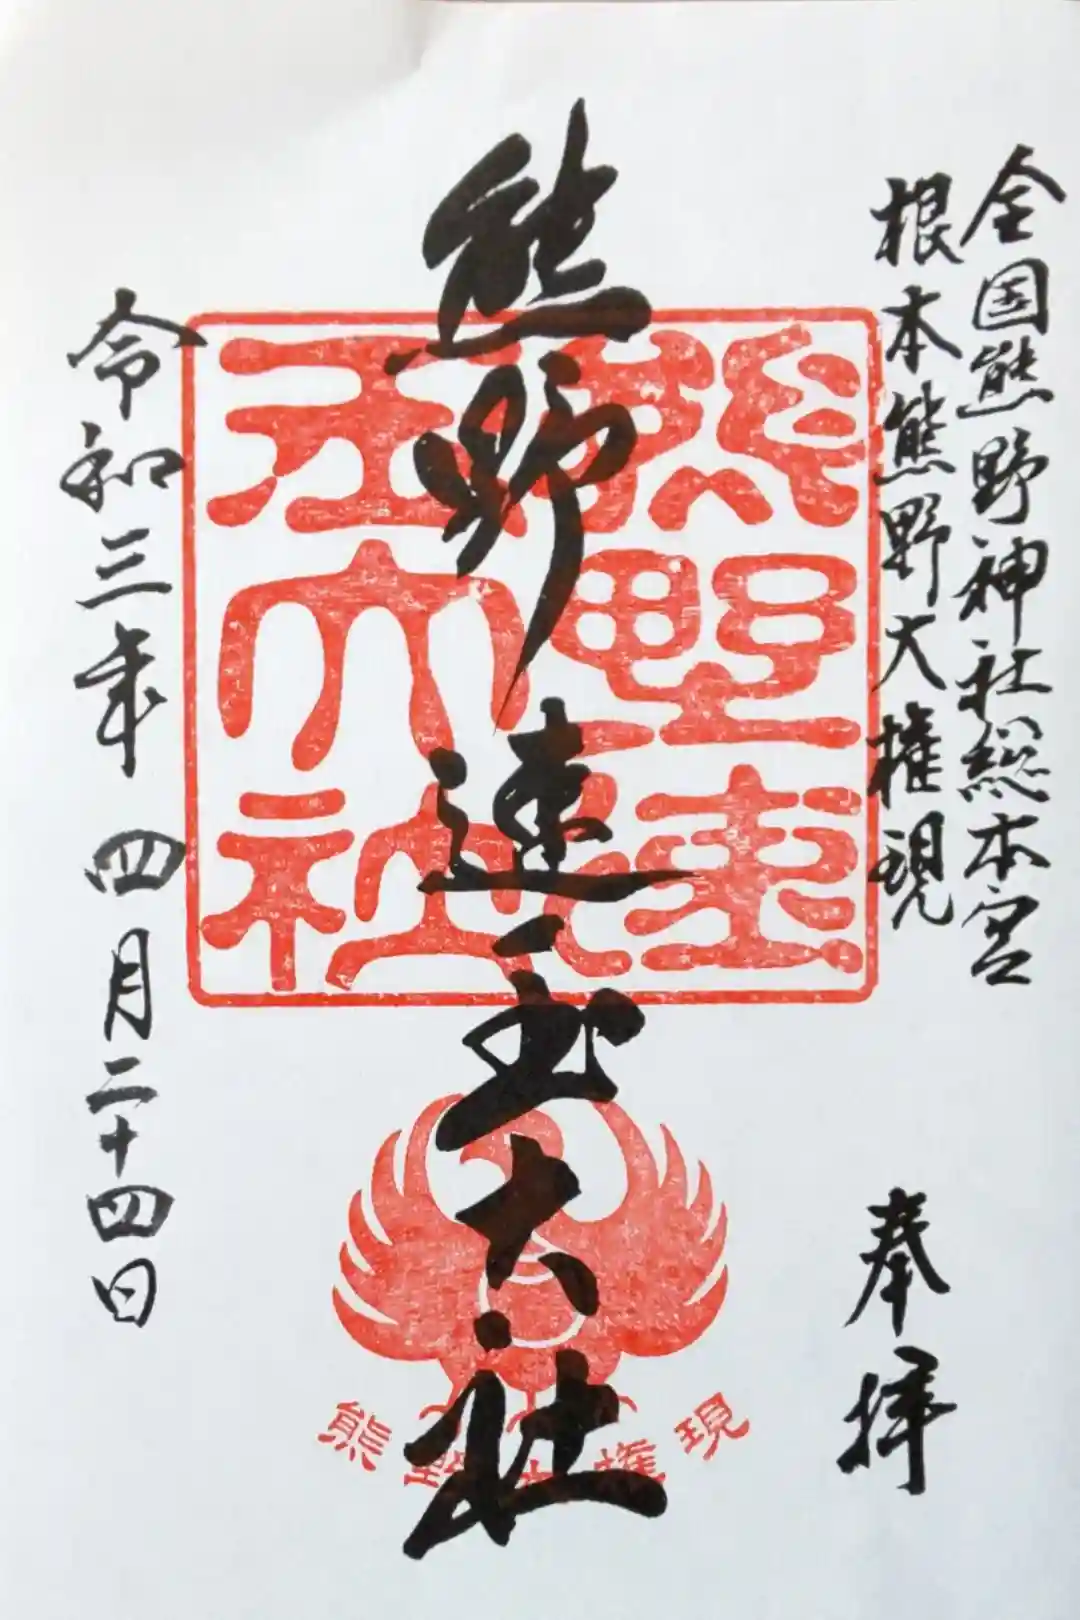 全国熊野神社総本宮
根本熊野大権現
奉拝
熊野速玉大社
熊野速玉大社
熊野大権現
令和三年 四月二十四日